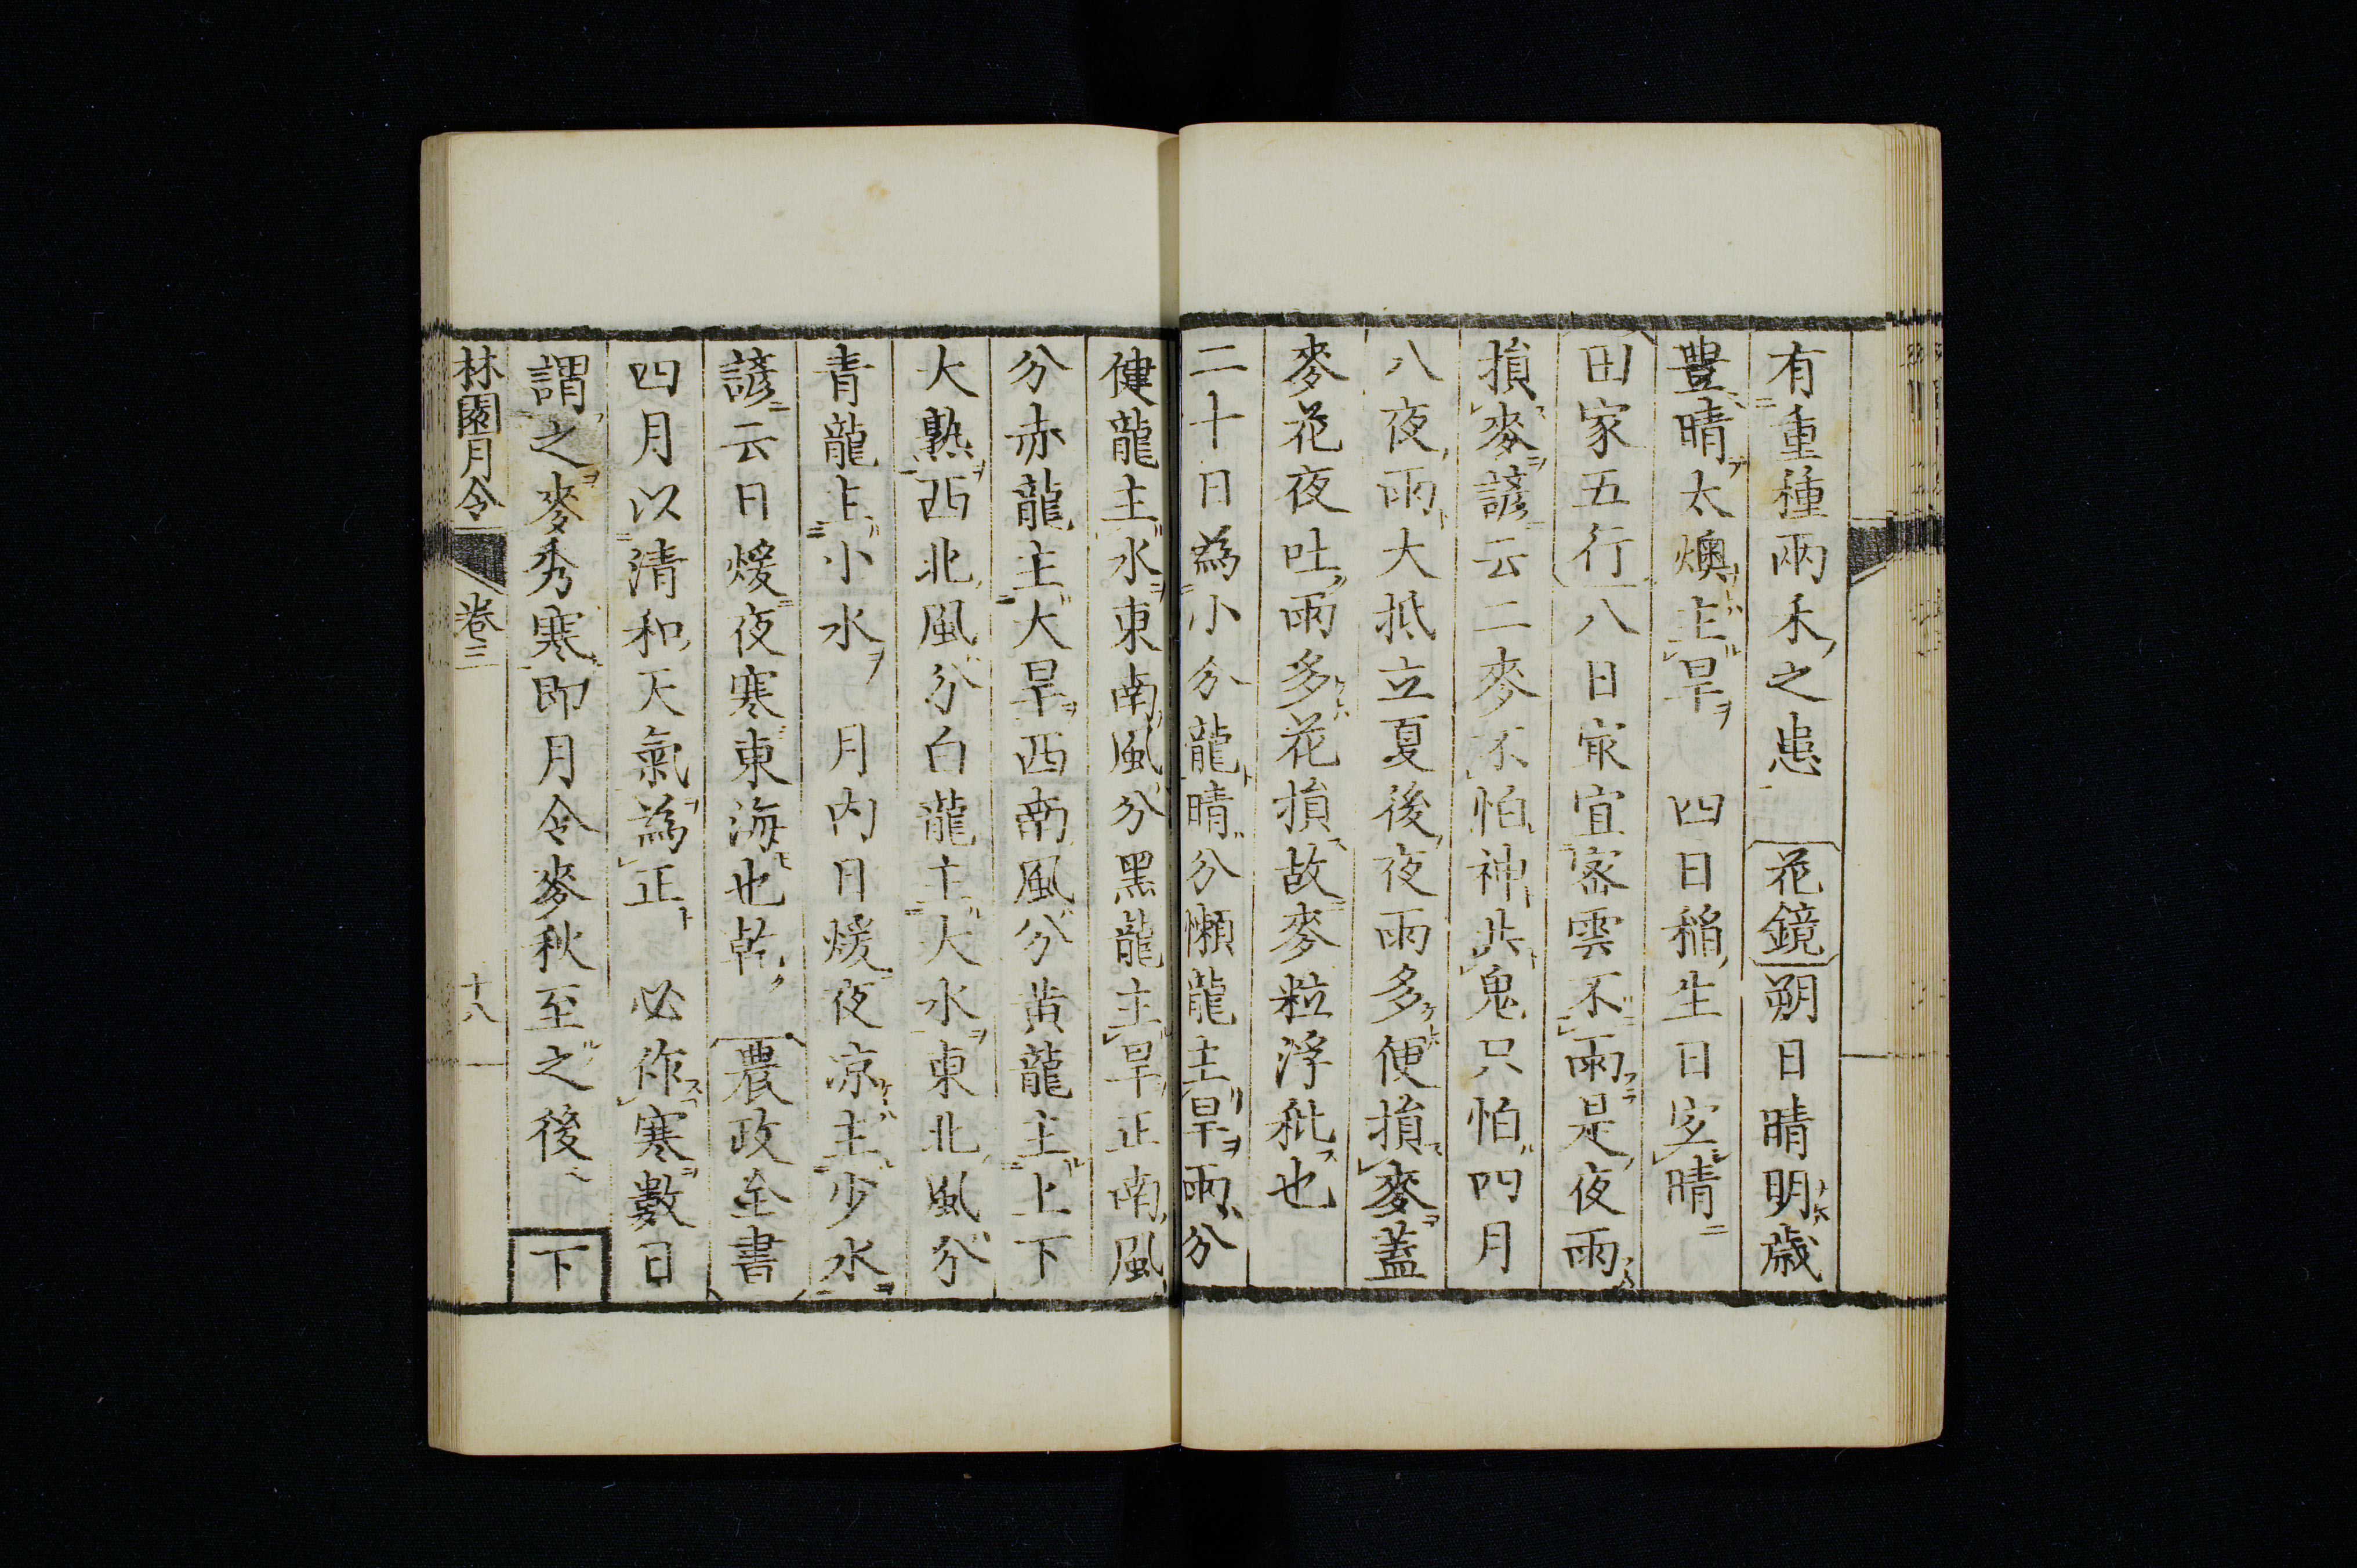 有重種兩禾之患 花鏡 朔日晴明歲
豊晴太燠主旱 四日稲生日宐晴
田家五行 八日㝡宜宻雲不雨是夜雨
損麥諺云二麥不怕神共鬼只怕四月
八夜雨大抵立夏後夜雨多便損麥蓋
麥花夜吐雨多花損故麥粒浮秕也
二十日為小分龍晴分懶龍主旱雨分
健龍主水東南風分黑龍主旱正南風
分赤龍主大旱西南風分黄龍主上下
大熟西北風分白龍主大水東北風分
青龍主小水 月内日煖夜凉主少水
諺云日煖夜寒東海也乾 農政全書
四月以清和天氣為正 必作寒數日
謂之麥秀寒即月令麥秋至之後 下
林園月令 卷三 十八